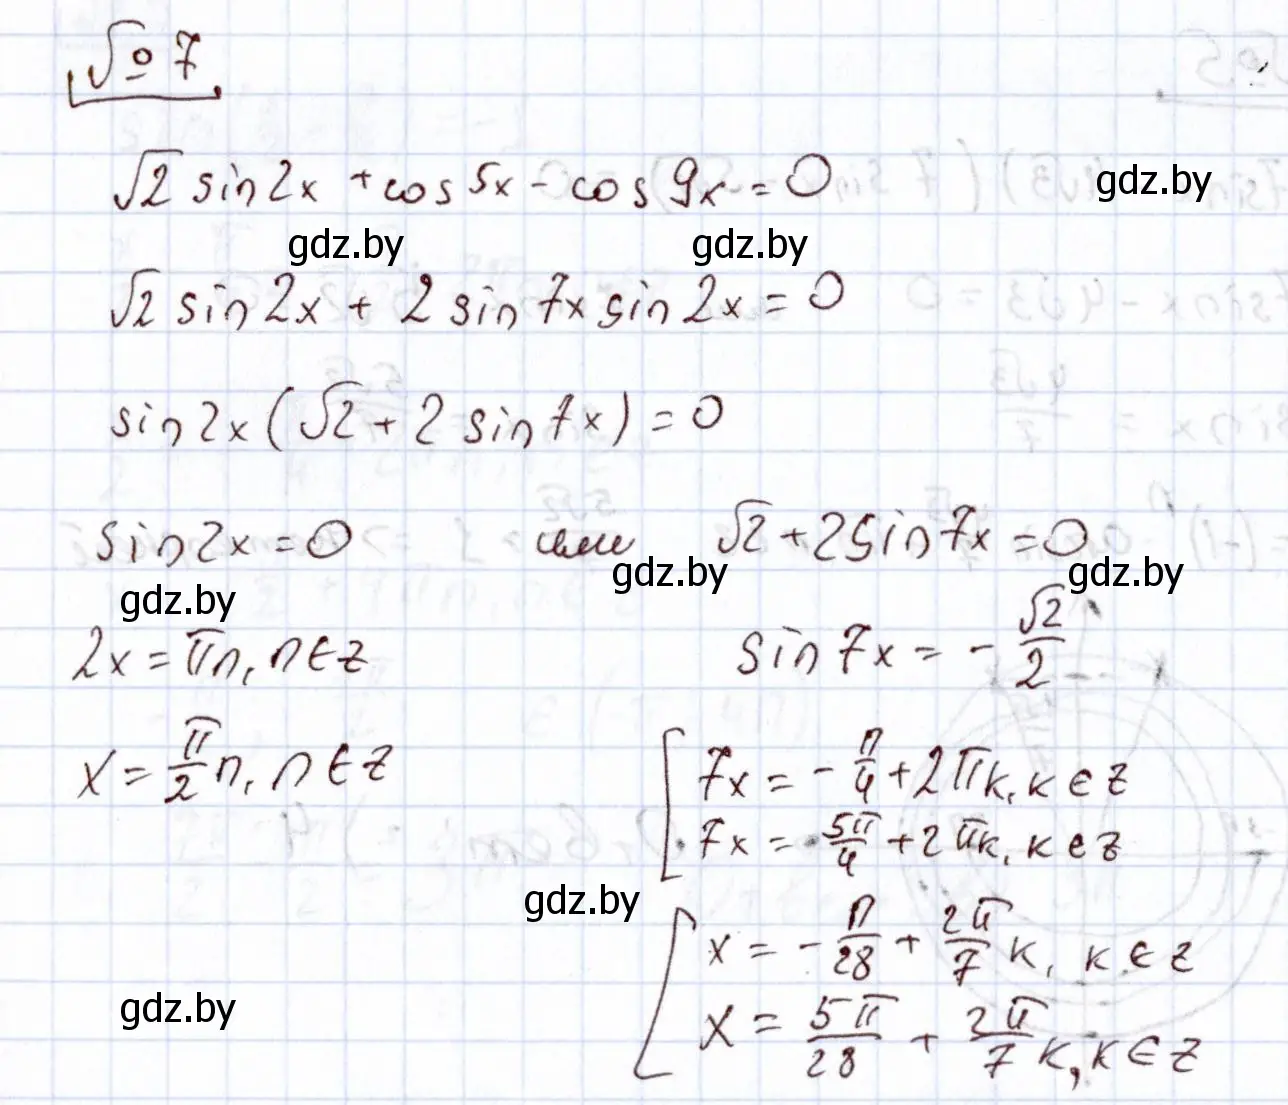 № 7
√2 sin2x + cos5x - cos9x = 0
gdz.by
gdz.by gdz.by
√2 sin2x + 2 sin7x sin2x = 0
sin2x(√2 + 2 sin7x) = 0
sin2x = 0 или √2 + 2sin7x = 0
gdz.by gdz.by gdz.by
2x = πn, n∈z sin7x = - √2/2
x = π/2 n, n∈z
7x = - π/4 + 2πk, k∈z
7x = 5π/4 + 2πk, k∈z
gdz.by
x = - π/28 + 2π/7 k, k∈z
gdz.by
x = 5π/28 + 2π/7 k, k∈z